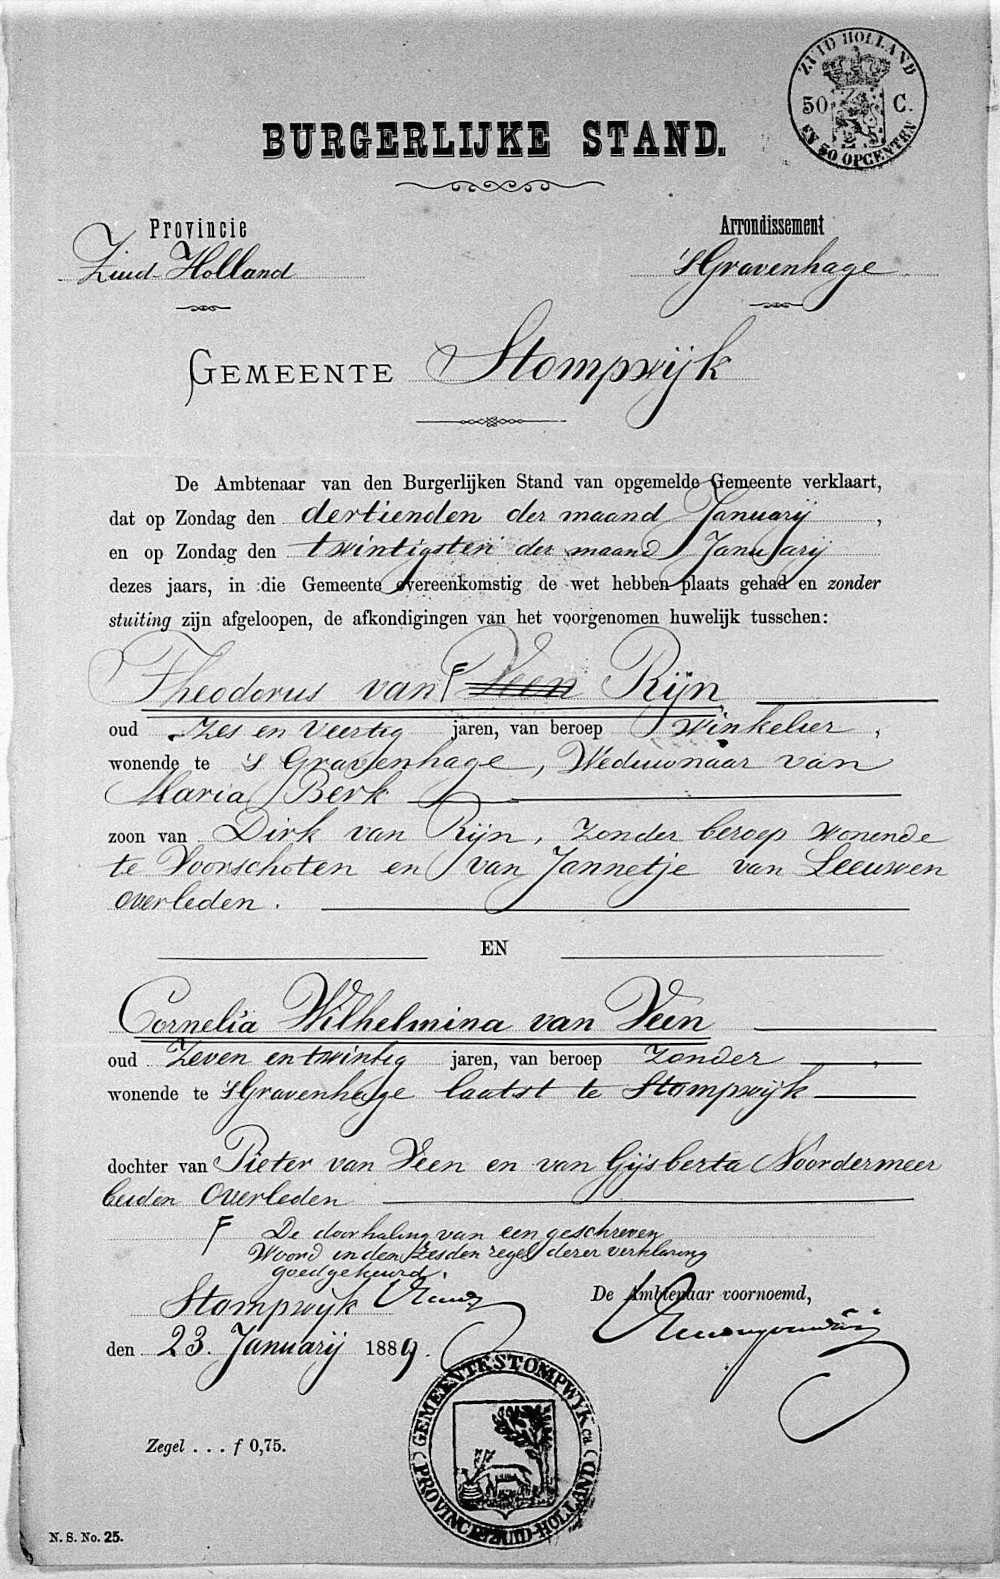 ZUID HOLLAND
50 C.
EN 50 OPCENTEN
BURGERLIJKE STAND.
Provincie
Zuid-Holland
Arrondissement
'sGravenhage
GEMEENTE Stompwijk
De Ambtenaar van den Burgerlijken Stand van opgemelde Gemeente verklaart,
dat op Zondag den dertienden der maand Januarij,
en op Zondag den twintigsten der maand Januarij
dezes jaars, in die Gemeente overeenkomstig de wet hebben plaats gehad en zonder
stuiting zijn afgeloopen, de afkondigingen van het voorgenomen huwelijk tusschen:
Theodorus van F Veen Rijn
oud Zes en Veertig jaren, van beroep Winkelier,
wonende te 's Gravenhage, Weduwnaar van
Maria Berk
zoon van Dirk van Rijn, zonder beroep wonende
te Voorschoten en van Jannetje van Leeuwen
overleden.
EN
Cornelia Wilhelmina van Veen
oud Zeven en twintig jaren, van beroep Zonder,
wonende te 'sGravenhage laatst te Stompwijk
dochter van Pieter van Veen en van Gijsberta Noordermeer
beiden overleden
F De doorhaling van een geschreven
Woord in den Zesden regel dezer verklaring
goedgekeurd.
Stompwijk
De Ambtenaar voornoemd,
den 23. Januarij 1889.
GEMEENTE STOMPWYK ca
PROVINCIE ZUID-HOLLAND
Zegel . . . f 0,75.
N. S. No. 25.